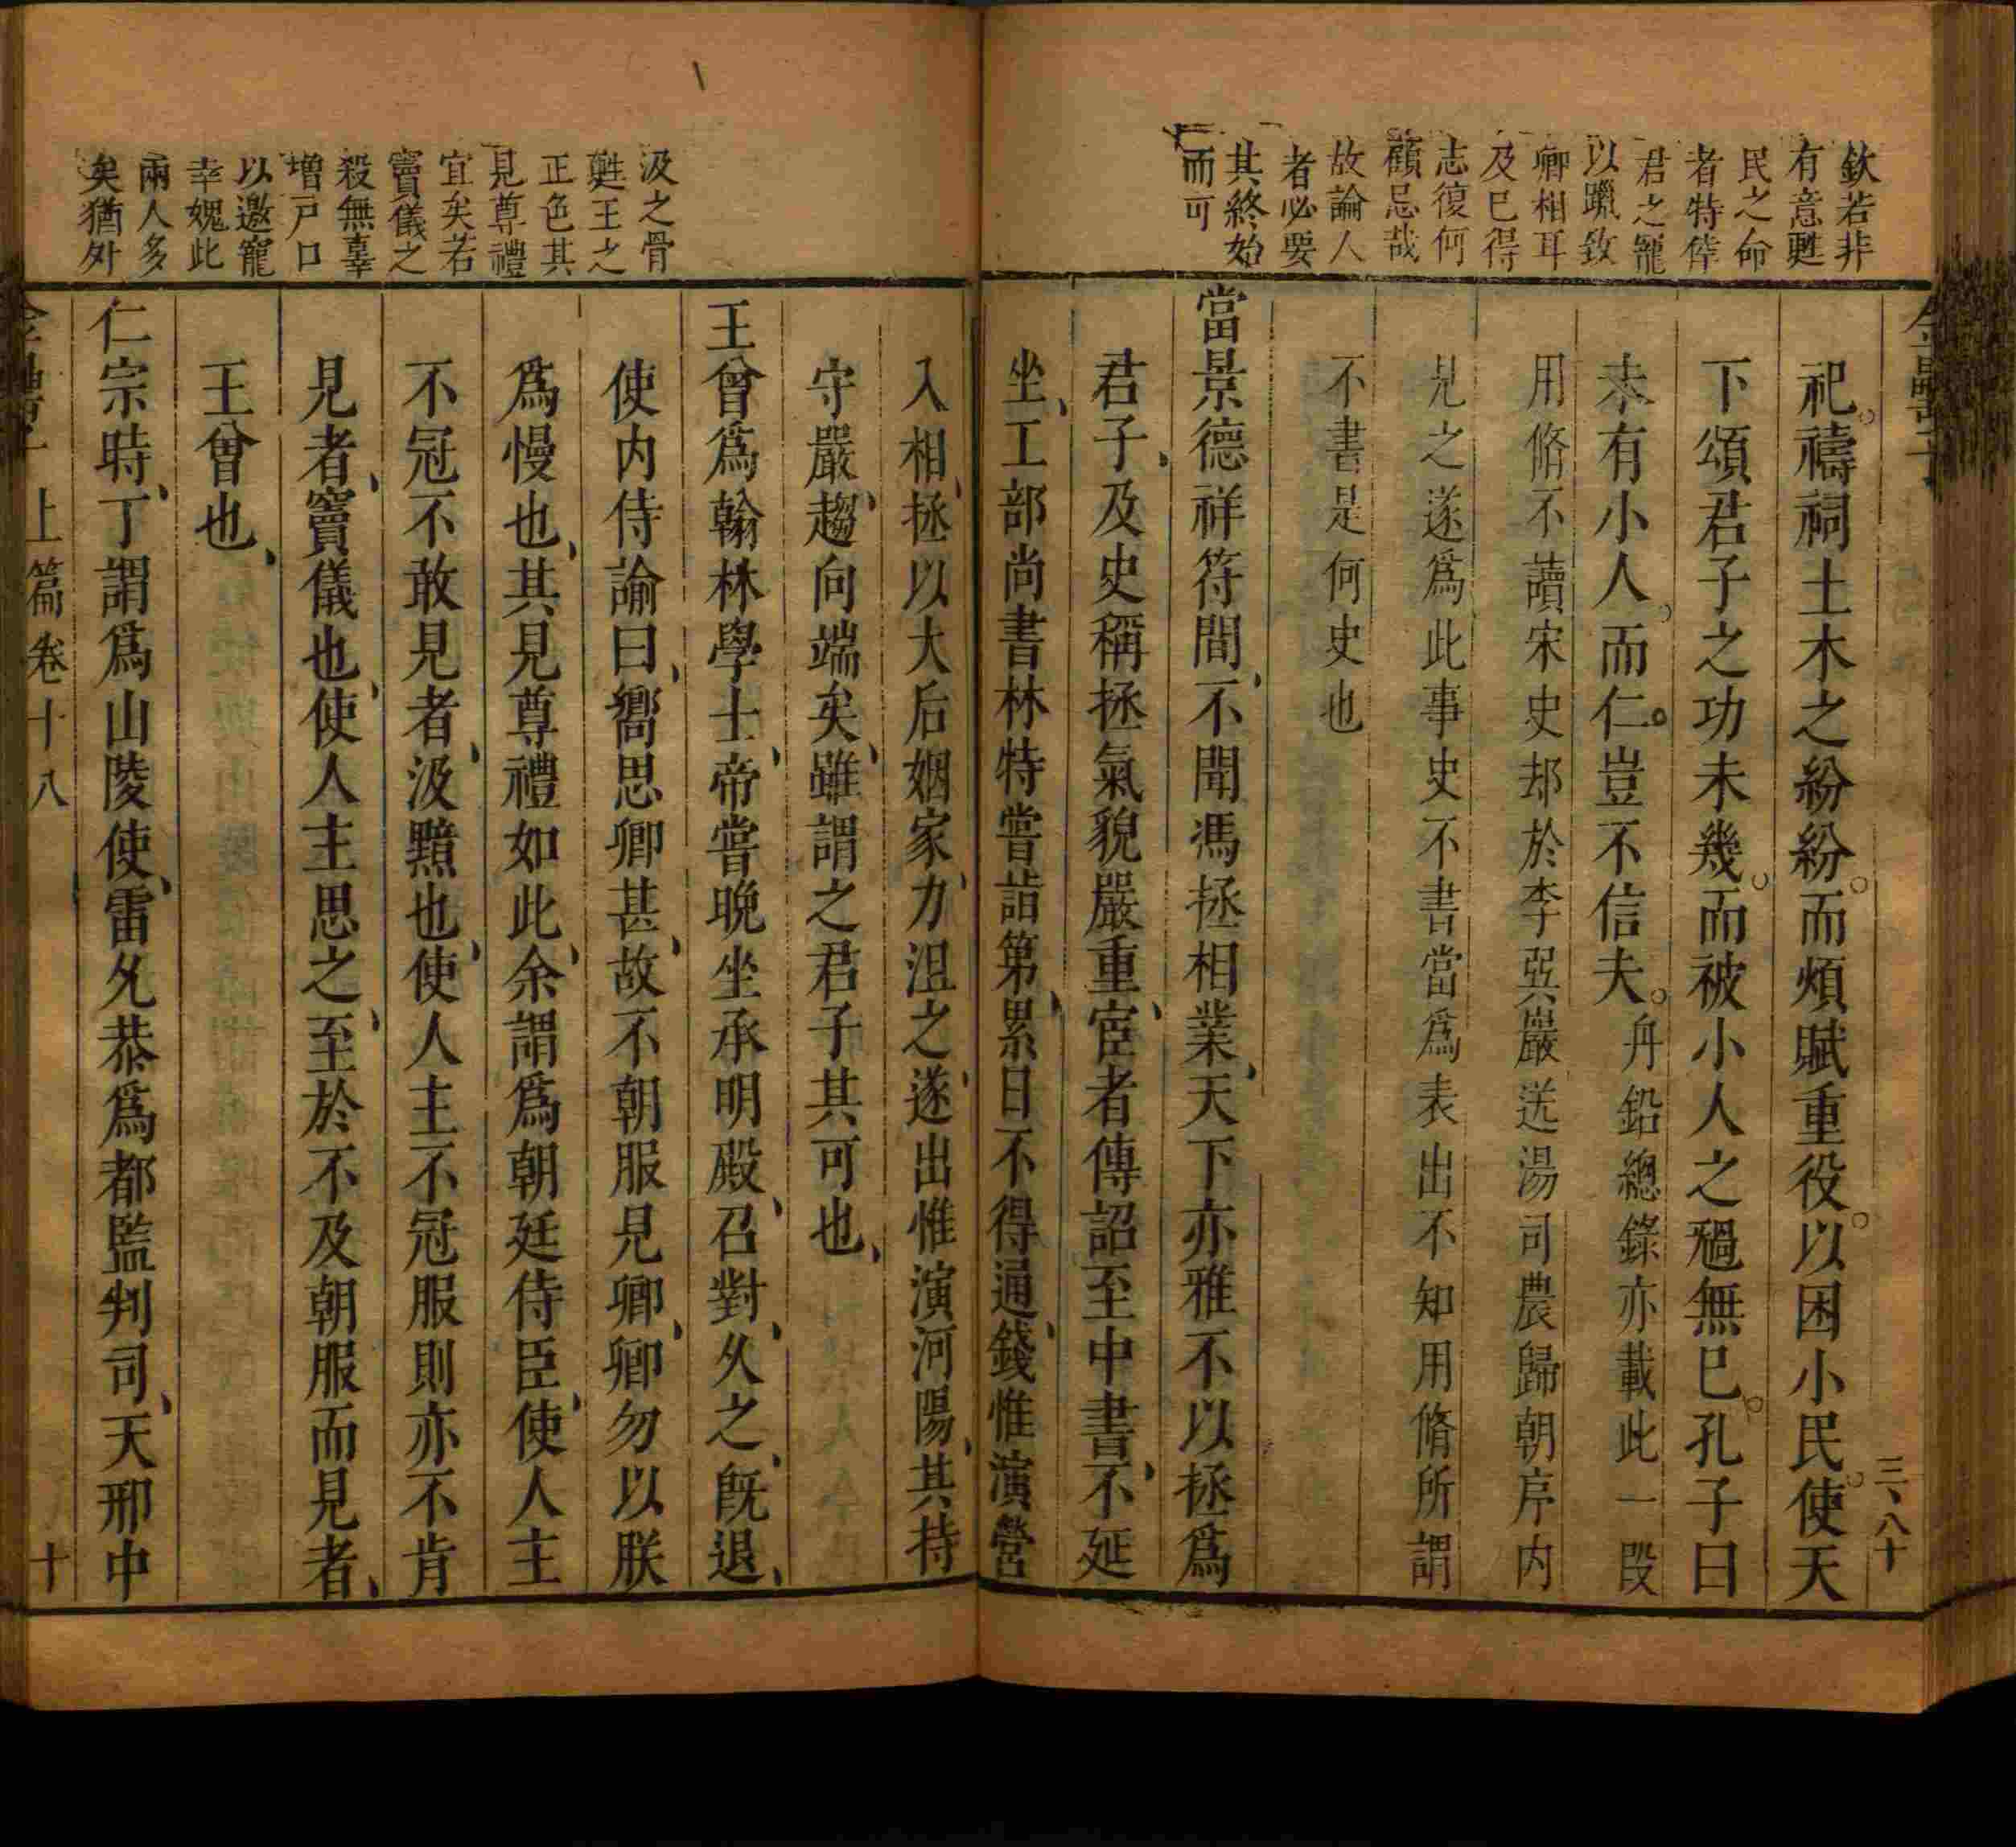 欽若非
有意甦
民之命
者特倖
君之寵
以躐致
卿相耳
及已得
志復何
顧忌哉
故論人
者必要
其終始
而可
三八十
祀禱祠土木之紛紛而煩賦重役以困小民使天
下頌君子之功未幾而被小人之禍無已孔子曰
未有小人而仁豈不信夫丹鉛總錄亦載此一段
用脩不讀宋史却於李㢲巖送湯司農歸朝序内
見之遂爲此事史不書當爲表出不知用脩所謂
不書是何史也
當景德祥符間不聞馮拯相業天下亦雅不以拯爲
君子及史稱拯氣貌嚴重宦者傳詔至中書不延
坐工部尚書林特嘗詣第累日不得通錢惟演營
汲之骨
甦王之
正色其
見尊禮
宜矣若
竇儀之
殺無辜
增戸口
以邀寵
幸媿此
兩人多
矣猶外
入相拯以大后姻家力沮之遂出惟演河陽其持
守嚴趨向端矣雖謂之君子其可也
王曾爲翰林學士帝嘗晚坐承明殿召對久之旣退
使内侍諭曰嚮思卿甚故不朝服見卿卿勿以朕
爲慢也其見尊禮如此余謂爲朝廷侍臣使人主
不冠不敢見者汲黯也使人主不冠服則亦不肯
見者竇儀也使人主思之至於不及朝服而見者
王曾也
仁宗時丁謂爲山陵使雷允恭爲都監判司天邢中
上篇卷十八 十